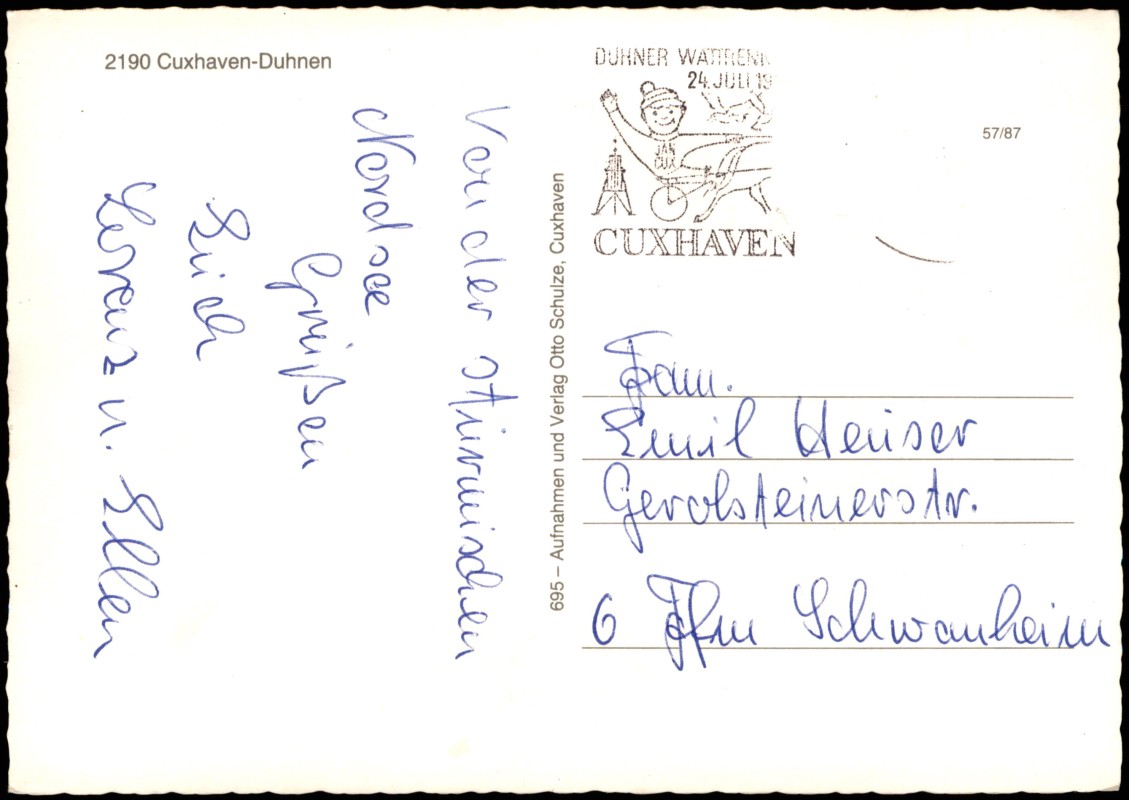 2190 Cuxhaven-Duhnen
Von der stürmischen
Nordsee
Grüßen
Euch
Lorenz u. Ellen
695 – Aufnahmen und Verlag Otto Schulze, Cuxhaven
DUHNER WATTRENN
24. JULI 19
JAN
CUX
CUXHAVEN
57/87
Fam.
Emil Heuser
Gerolsteinerstr.
6 Ffm Schwanheim